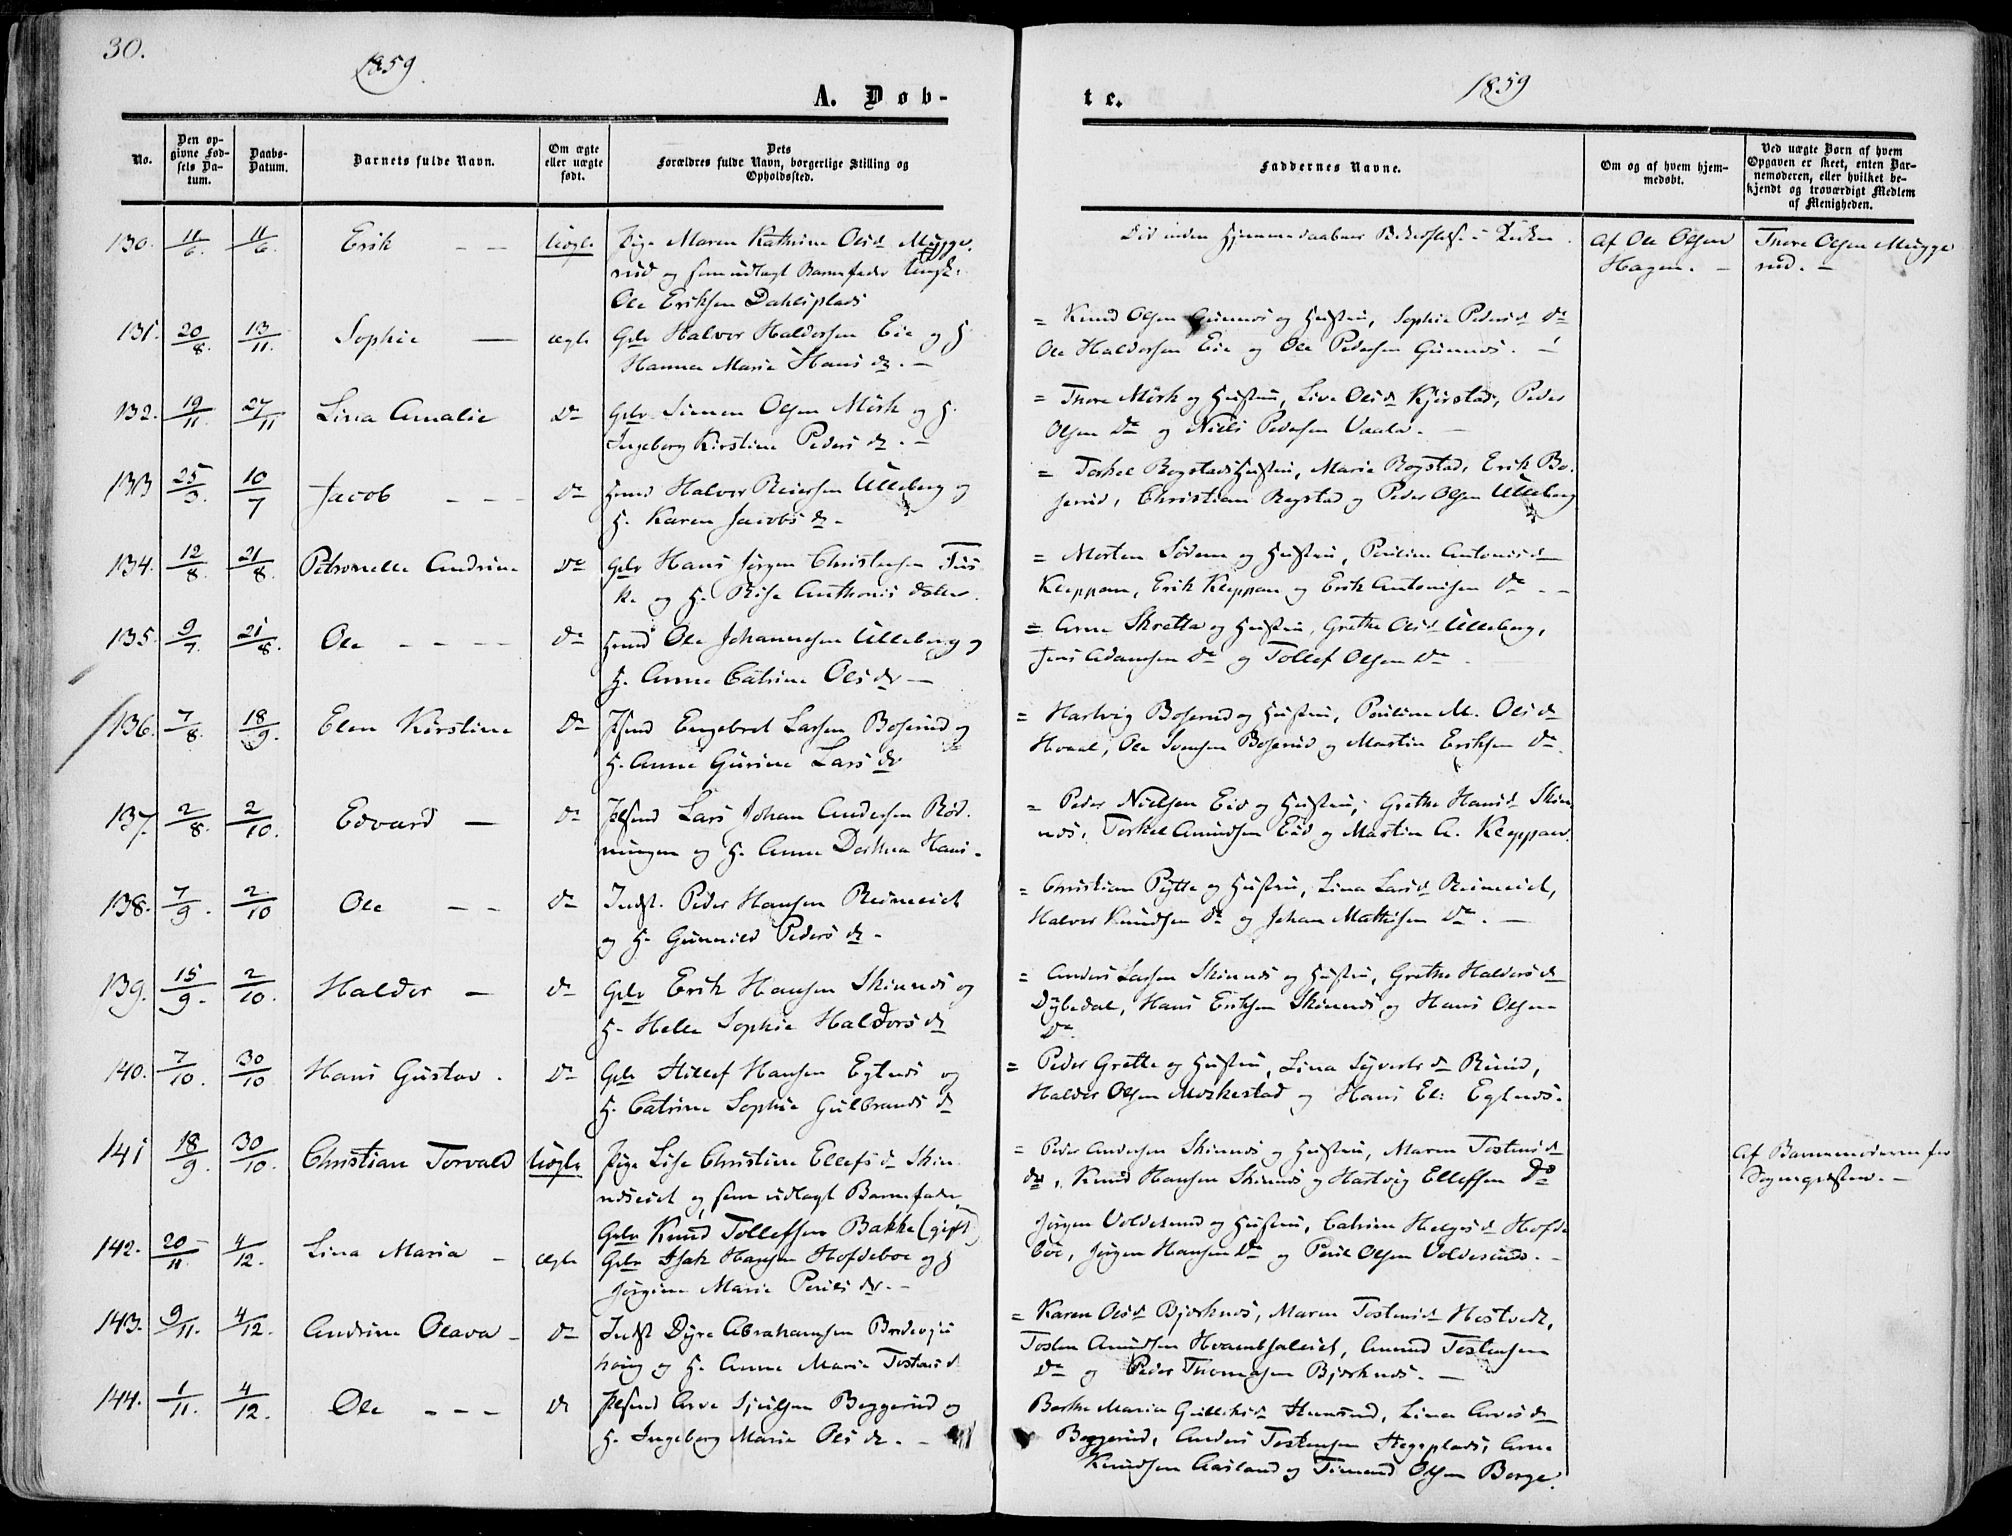 30.
1859
1859
A. Døb-
te.
No.
Den op-
givne Fød-
sels Da-
tum.
Daabs-
Datum.
Barnets fulde Navn.
Om ægte
eller uægte
født.
Dets
Forældres fulde Navn, borgerlige Stilling og
Opholdssted.
Faddernes Navne.
Om og af hvem hjem-
medøbt.
Ved uægte Børn af hvem
Opgaven er skeet, enten Bar-
nemoderen, eller hvilket be-
kjendt og troværdigt Medlem
af Menigheden.
130. 11/6. 11/6. Erik - - Uægte Pige Maren Kathrine Olsd Mugge-
rud og som udlagt Barnefader Ungk.
Ole Eriksen Dahlsplads
Død inden Hjemmedaabens Bekræftelse i Kirken.
Af Ole Olsen
Hagen. -
Thore Olsen Mugge
rud. -
131. 20/8. 13/11. Sophie - ægte Gbr Halvor Haldorsen Eie og H
Hanna Marie Hans dr. -
= Knud Olsen Gunnes og Hustru, Sophie Pedersd Do
Ole Haldorsen Eie og Ole Pedersen Gunnes. -
132. 19/11. 27/11 Lina Amalie Do Gbr Simen Olsen Mörk og H.
Ingeborg Kirstine Peders dr. -
= Thore Mörk og Hustru, Live Olsd Kjörstad, Peder
Olsen Do og Niels Pedersen Vaala. -
133 25/3. 10/7 Jacob - - - Do Hmd Halvor Reiersen Ulleberg og
H. Karen Jacobs dr -
= Torkel Rogstads Hustru, Marie Rogstad, Erik Bo-
serud, Christian Rogstad og Peder Olsen Ulleberg
134. 12/8. 21/8. Petronelle Andrine Do Gbr Hans Jørgen Christensen Fis
k. og H. Rise Anthonis datter.
= Morten Sodem og Hustru, Pauline Antonisd
Kleppan, Erik Kleppan og Erik Antonisen Do - -
135. 9/7. 21/8. Ole - - - Do Hmd Ole Johannesen Ulleberg og
H. Anne Catrine Ols dr -
= Arne Skretta og Hustru, Grethe Olsd Ulleberg,
Jens Adamsen Do og Tollef Olsen Do
136. 7/8. 18/9. Elen Kirstine Do Huusmd Engebret Larsen Boserud og
H. Anne Gurine Lars dr
= Hartvig Boserud og Hustru, Pauline M. Ols dr
Hvaal, Ole Svensen Boserud og Martin Eriksen Do.
137. 2/8. 2/10. Edvard - Do Lars Johan Andersen Rød-
ningen og H. Anne Dorthea Hans-
= Peder Nielsen Eid og Hustru, Grethe Hansd Skin
nes, Torkel Amundsen Eid og Martin A. Kleppan.
138. 7/9. 2/10 Ole - - Do Indst. Peder Hansen Reimeiet
og H. Gunnild Peders dr -
= Christian Pytte og Hustru, Lina Larsd Reimeiet,
Halvor Knudsen Do og Johan Mathisen Do. -
139. 15/9. 2/10. Haldor - Do Gbr Erik Hansen Skinnes og
H. Helle Sophie Haldors dr
= Anders Larsen Skinnes og Hustru, Grethe Haldors dr
Dybedal, Hans Eriksen Skinnes og Hans Olsen
Do
140. 7/10. 30/10 Hans Gustav. Do Gbr Hellef Hansen Egtnes og
H. Catrine Sophie Gulbrands dr
= Peder Grette og Hustru, Lina Syverts dr Ruud,
Haldor Olsen Morkestad og Hans El: Egtnes.
141 18/9. 30/10. Christian Torvald Uægte Pige Lise Christine Ellefs dr Skin
neseiet og som udlagt Barnefader
Gbr Knud Tollefsen Bakke (gift)
= Peder Andersen Skinnes og Hustru, Maren Tostens dr
Do, Knud Hansen Skinnes og Hartvig Ellefsen Do
Af Barnemoderen for
Sognepresten. -
142. 20/11. 4/12. Lina Maria - ægte Gbr Isak Hansen Hofdeboe og H
Jörgine Marie Pauls dr. -
Jørgen Voldesund og Hustru, Catrine Helgesd Hofde
boe, Jørgen Hansen Do og Paul Olsen Voldesund. -
143. 9/11. 4/12. Andrine Olava - Do Indst Dyre Abrahamsen
haug og H. Anne Marie Tostens d
= Karen Olsd Bjørknes, Maren Tostensd Hostvedt,
Tosten Amundsen Hvambsaleiet, Amund Tostensen
Do og Peder Thomasen Bjørknes. -
144. 1/11. 4/12. Ole - - - Do Arve Sjulsen Beggerud og
H. Ingeborg Marie Ols dr. -
Berthe Maria Gulliksd Lina Arvesd
Beggerud, Anders Tostensen Hageplads, Arne
Knudsen Aasland og Simund Olsen Berge.